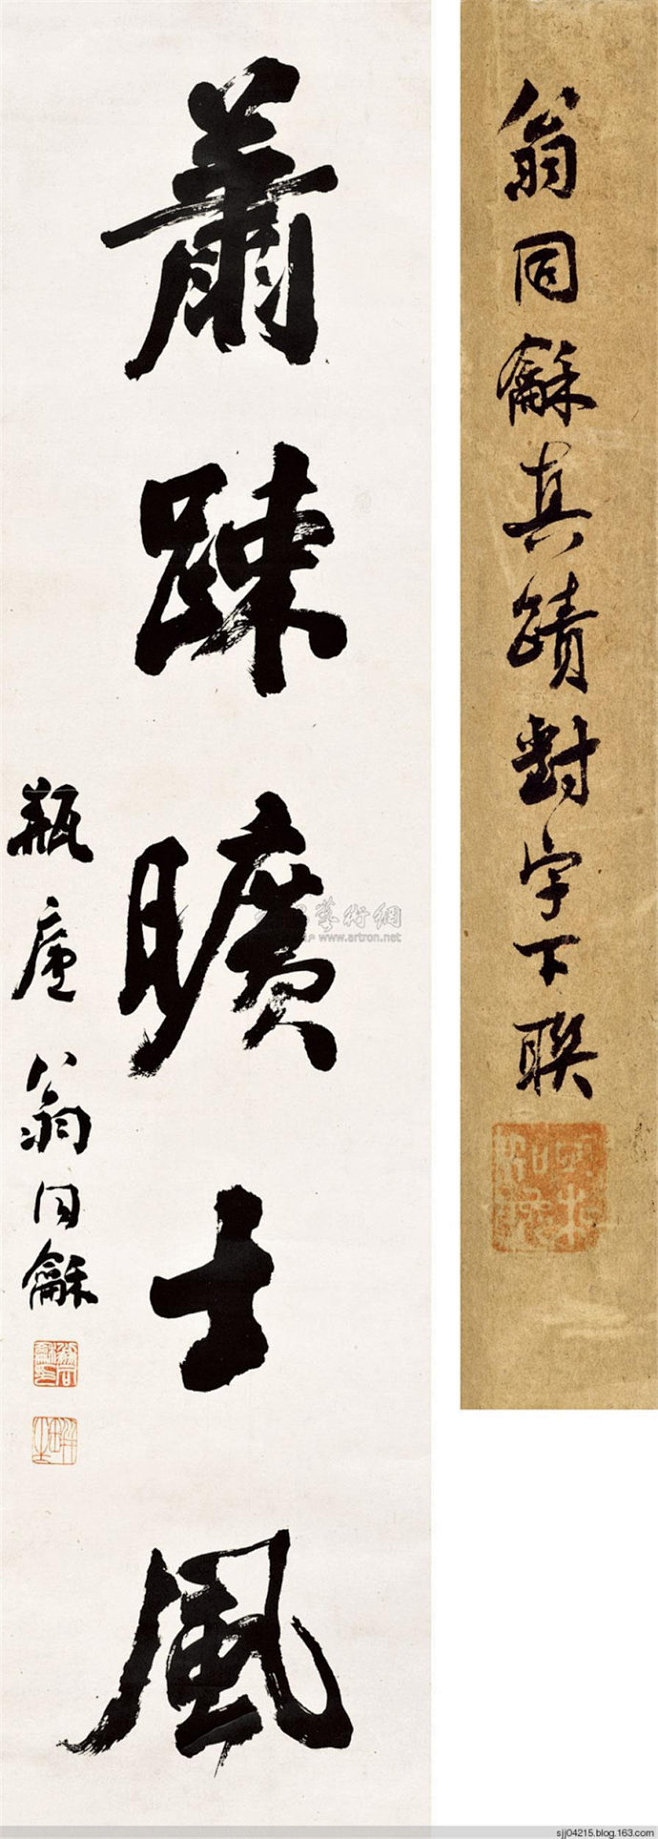 翁同龢真蹟對字下聯
蕭踈曠士風
瓶廬翁同龢
藝術網
www.artron.net
sjj04215.blog.163.com